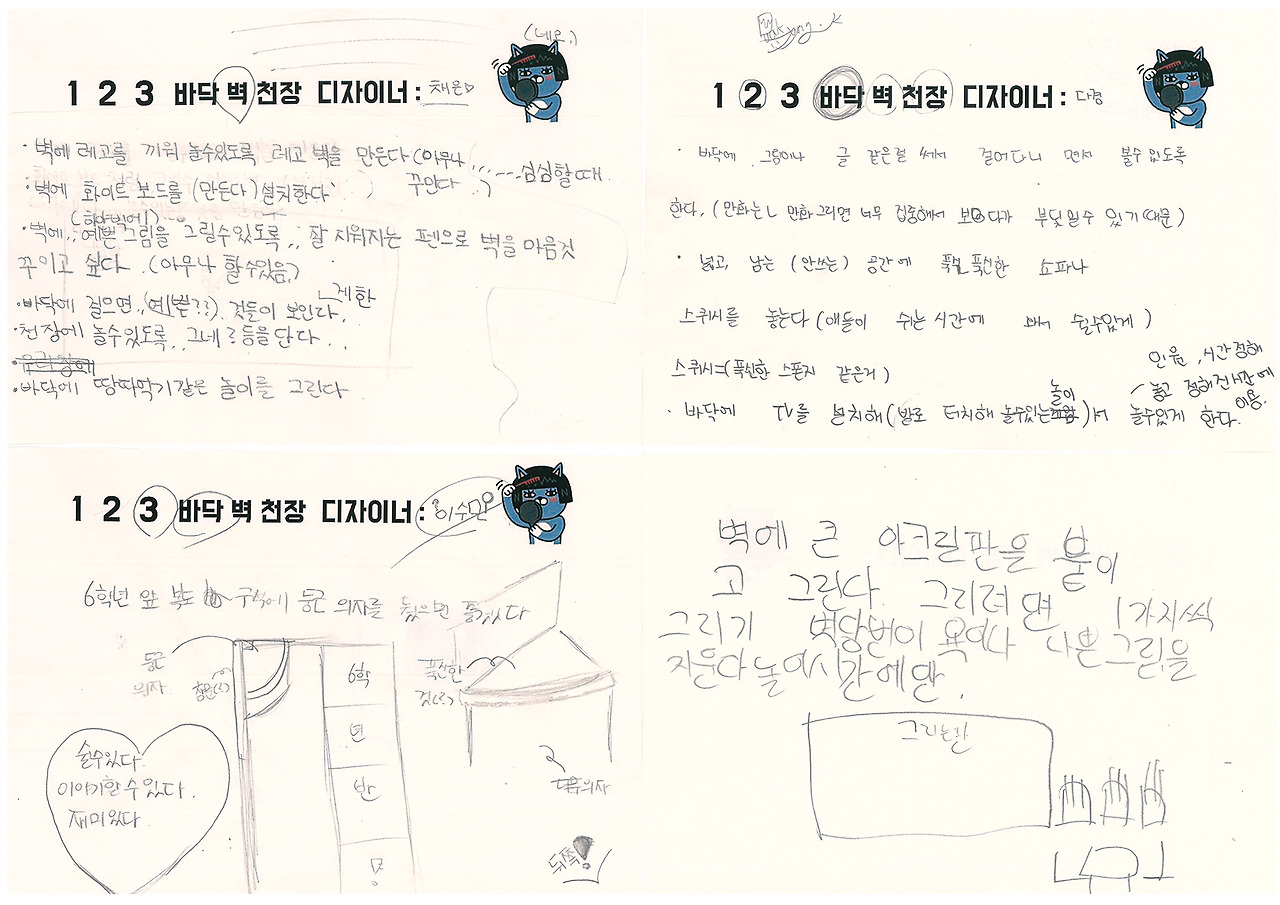 (네모)
1 2 3 바닥 벽 천장 디자이너 : 채은♡
· 벽에 레고를 끼워 놀수있도록 레고 벽을 만든다 (아무나
꾸민다 심심할때
· 벽에 화이트 보드를 (만든다) 설치한다
(하얀벽에!)
· 벽에,, 예쁜그림을 그릴수있도록,, 잘 지워지는 펜으로 벽을 마음껏
꾸미고 싶다. (아무나 할수있음)
제한
· 바닥에 걸으면,, (예쁜??) 것들이 보인다,
· 천장에 놀수있도록,, 그네? 등을 단다..
· 바닥에 땅따먹기같은 놀이를 그린다
1 2 3 바닥 벽 천장 디자이너 : 다경
· 바닥에 그림이나 글 같은걸 써서 걸어다니 면서 볼수있도록
한다. (만화는 만화그리면 너무 집중해서 보다가 부딪힐수 있기때문)
· 넓고, 남는 (안쓰는) 공간에 푹신푹신한 쇼파나
스퀴시를 놓는다 (애들이 쉬는시간에 와서 쉴수있게)
스퀴시=(푹신한 스폰지 같은거)
인원, 시간정해
놓고 정해진시간에
이용.
놀이
· 바닥에 TV를 설치해 (발로 터치해 놀수있는)서 놀수있게 한다.
1 2 3 바닥 벽 천장 디자이너 : 이수민
6학년 앞 복도 구석에 둥근 의자를 뒀으면 좋겠다
둥근
의자
창문(?)
6학
년
반
문
푹신한
것(?)
의자
뒤쪽!
쉴수있다.
이야기할수있다.
재미있다.
벽에 큰 아크릴판을 붙이
고 그린다. 그리려면 1가지씩
그리기 벽당번이 욕이나 나쁜그림을
지운다 놀이시간에만.
그리는판